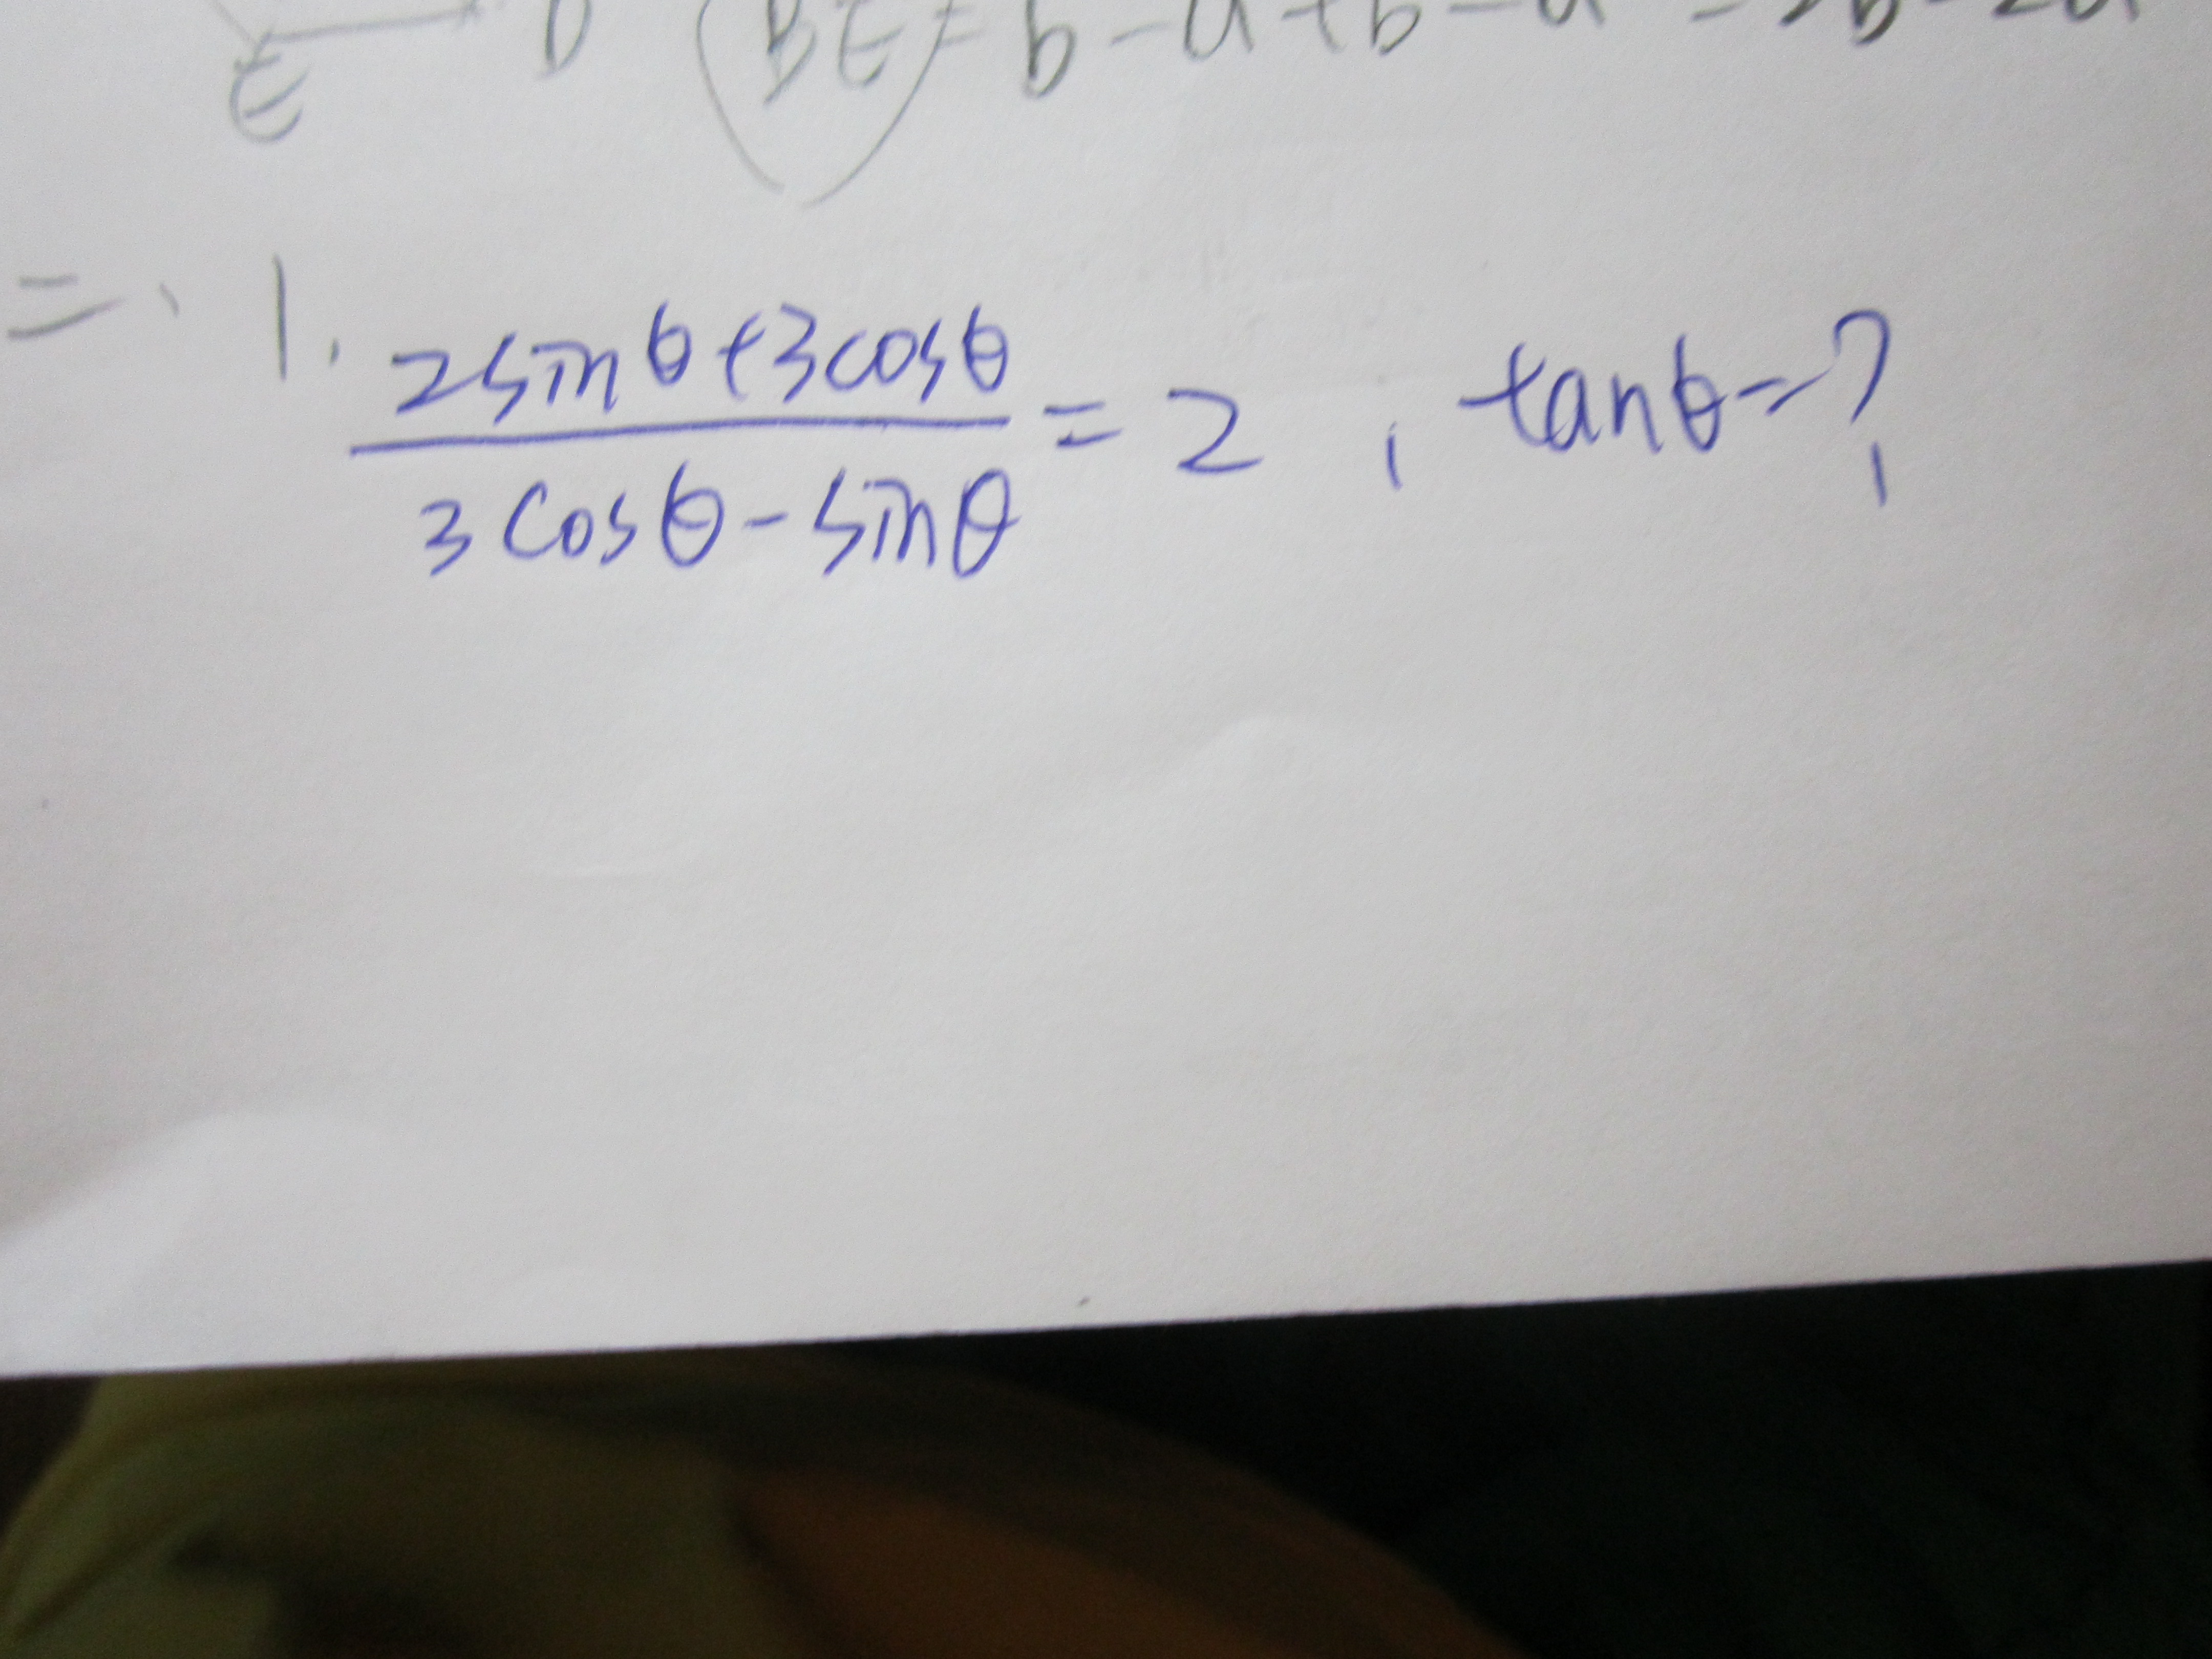 E D (BE) = b - a + b - a = 2b - 2a
二、1. (2sinθ+3cosθ)/(3cosθ-sinθ) = 2 , tanθ=?